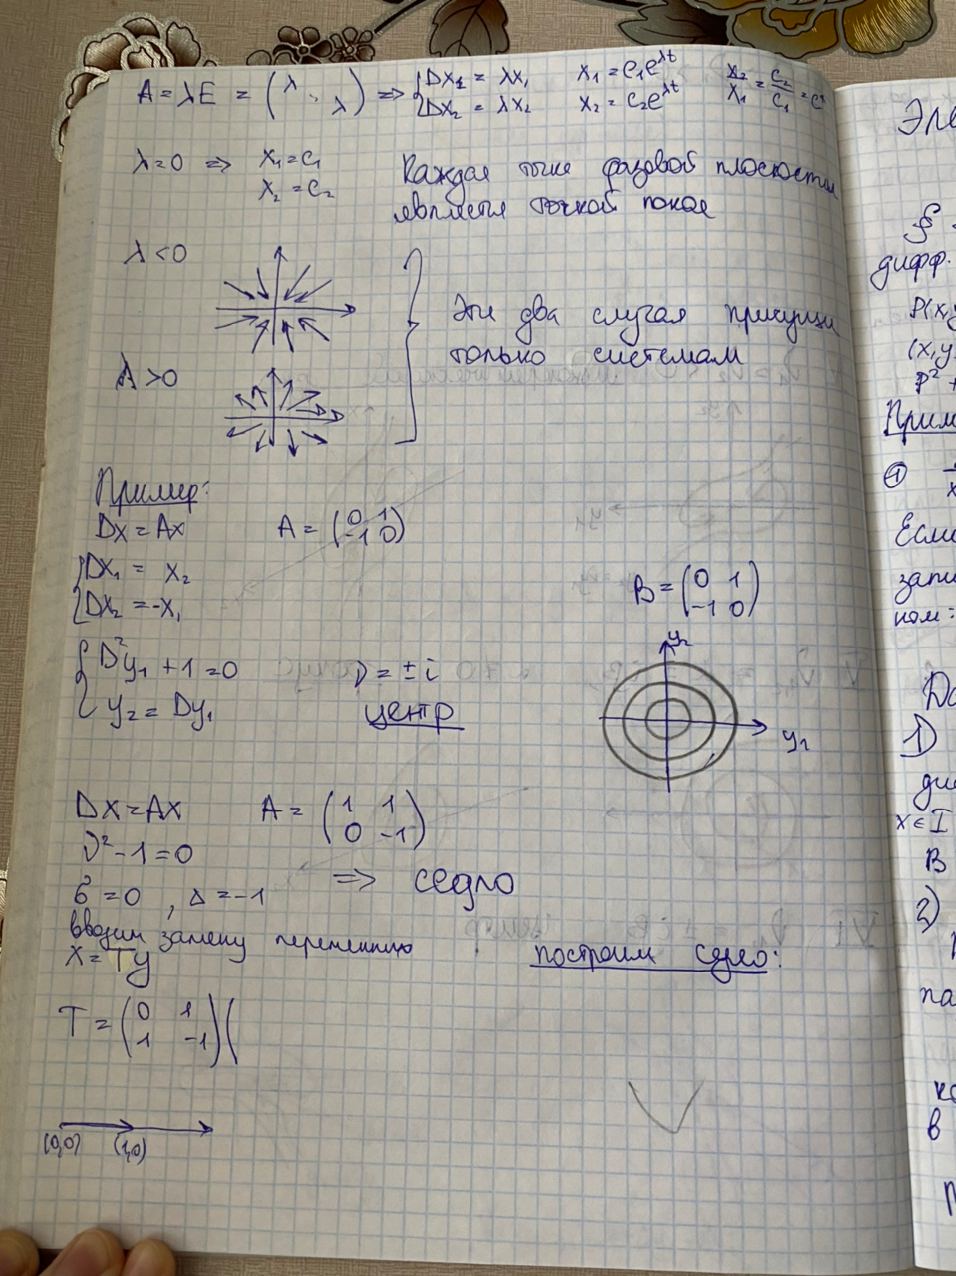 A = λE = (λ λ) => {Dx₁ = λx₁ x₁ = c₁e^λt x₂/x₁ = c₂/c₁ = c*
Dx₂ = λx₂ x₂ = c₂e^λt
λ = 0 => x₁ = c₁ Каждая точка фазовой плоскости
x₂ = c₂ является точкой покоя
λ < 0
Эти два случая присущи
только системам
λ > 0
Пример:
Dx = Ax A = (0 1
-1 0)
{Dx₁ = x₂
Dx₂ = -x₁
B = (0 1
-1 0)
{D²y₁ + 1 = 0 ν = ± i
y₂ = Dy₁ центр
y₂
y₁
Dx = Ax A = (1 1
0 -1)
ν² - 1 = 0
σ = 0 , Δ = -1 => седло
вводим замену переменных
x = Ty построим седло:
T = (0 1
1 -1) (
(0,0) (1,0)
Эле
дифф.
P(x,y
(x,y
P² +
Прим
①
x
Если
запи
ном:
1)
x ∈ I
В
2)
па
ко
в